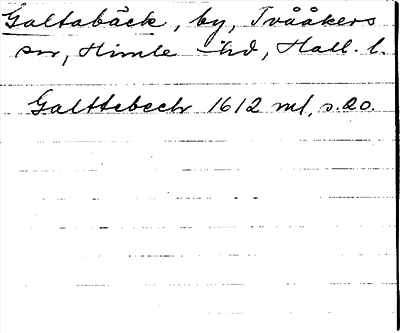 Galtabäck, by, Tvååkers
sn, Himle hd, Hall. l.
Galttebech 1612 ml, s. 20.